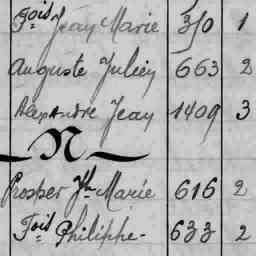 Fois Jean Marie 350 1
Auguste Julien 663 2
Alexandre Jean 1409 3
N
Prosper Jh Marie 616 2
Fois Philippe - 633 2